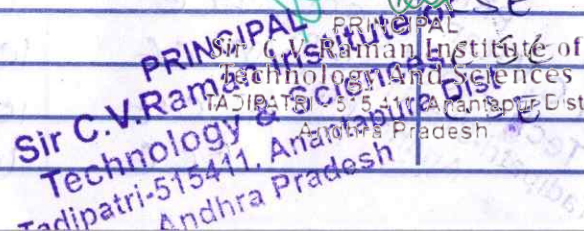 PRINCIPAL
Sir C.V.Raman Institute of
Technology & Sciences
Tadipatri-515411, Anantapur Dist
Andhra Pradesh
PRINCIPAL
Sir C.V.Raman Institute of
Technology And Sciences
TADIPATRI-515411 Anantapur Dist
Andhra Pradesh
CSE